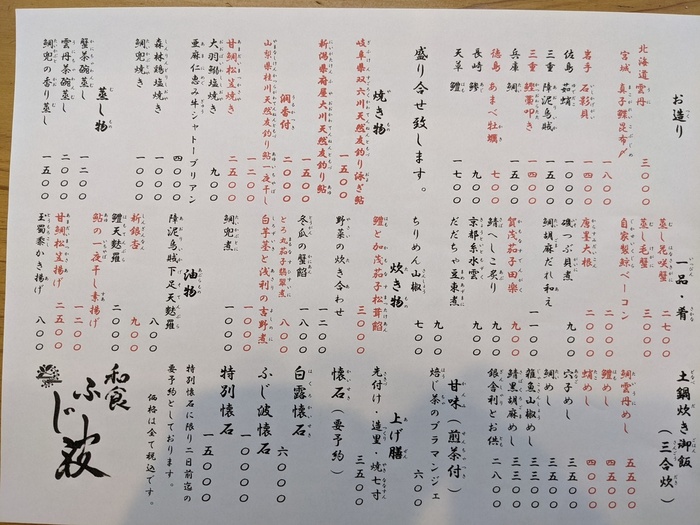 お造り
北海道 雲丹 三〇〇〇
宮城 真子鰈昆布〆 一八〇〇
岩手 石影貝 一四〇〇
佐島 茹蛸
三重 障泥烏賊
三重 鰹藁叩き 一四〇〇
兵庫 鯛 一五〇〇
徳島 あまべ牡蠣 七〇〇
長崎 鯵
天草 鱧 一七〇〇
盛り合せ致します。
焼き物
岐阜県双六川天然友釣り泳ぎ鮎 一五〇〇
新潟県府屋大川天然友釣り鮎
潤香付 二〇〇〇
山梨県桂川天然友釣り鮎一夜干し 一二〇〇
甘鯛松笠焼き 二五〇〇
大羽鰯塩焼き 九〇〇
亜麻仁恵み牛シャトーブリアン 四〇〇〇
森林鶏塩焼き 一〇〇〇
鯛兜焼き 一〇〇〇
蒸し物
蟹茶碗蒸し 一二〇〇
雲丹茶碗蒸し 二〇〇〇
鯛兜の香り蒸し 一五〇〇
一品・肴
蒸し花咲蟹 二七〇〇
蒸し毛蟹 三〇〇〇
自家製鯨ベーコン 二〇〇〇
唐墨大根 二〇〇〇
磯つぶ貝煮 九〇〇
鯛胡麻だれ和え 一一〇〇
賀茂茄子田楽 九〇〇
鯖へしこ炙り 九〇〇
京都糸水雲 九〇〇
だだちゃ豆東煮 九〇〇
ちりめん山椒 七〇〇
炊き物
鱧と加茂茄子松茸餡 三〇〇〇
野菜の炊き合わせ 一二〇〇
冬瓜の蟹餡 一八〇〇
とろ丸茄子翡翠煮 八〇〇
白芋茎と浅利の吉野煮 一〇〇〇
鯛兜煮 一〇〇〇
油物
障泥烏賊下足天麩羅 八〇〇
新銀杏 九〇〇
鱧天麩羅 二〇〇〇
鮎の一夜干し素揚げ 一二〇〇
甘鯛松笠揚げ 二五〇〇
玉蜀黍かき揚げ 八〇〇
土鍋炊き御飯
(三合炊)
鯛雲丹めし 五五〇〇
鱧めし 四五〇〇
蛸めし 四〇〇〇
穴子めし 三五〇〇
鯛めし 三五〇〇
雑魚山椒めし 三三〇〇
鯖里胡麻めし 三三〇〇
銀舎利とお供 二八〇〇
甘味(煎茶付)
焙じ茶のブラマンジェ 六〇〇
上げ膳
先付け・造里・焼七寸 三五〇〇
懐石(要予約)
白露懐石 六〇〇〇
ふじ波懐石 一〇〇〇〇
特別懐石 一五〇〇〇
特別懐石に限り二日前迄の
要予約としております。
価格は全て税込です。
和食
ふじ荻